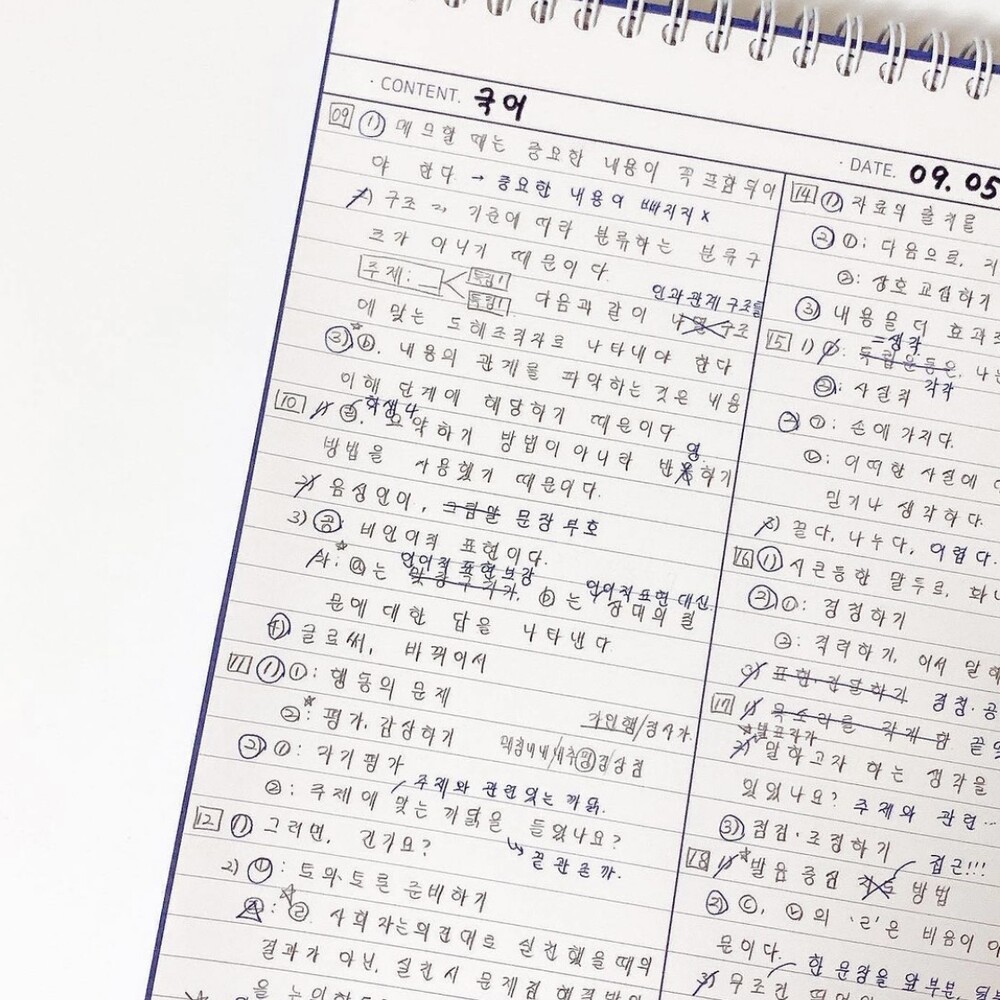 · CONTENT. 국어
· DATE. 09. 05
09 1) 메크할 때는 중요한 내용이 꼭 포함되어
야 한다 → 중요한 내용이 빠지지 x
2) 구조 기준에 따라 분류하는 분류구
조가 아니기 때문이다.
주제: 특징1
특징1 다음과 같이 구조
인과관계 구조를
에 맞는 도해조직자로 나타내야 한다
3) ⓑ. 내용의 관계를 파악하는 것은 내용
이해 단계에 해당하기 때문이다
학생 나
10 1) 요약하기 방법이 아니라 반영하기
방법을 사용했기 때문이다.
2) 음성언어, 그림말 문장 부호
3) ㉢ 비언어적 표현이다.
언어적 표현 보강
언어적 표현 대신
ⓐ는 ⓑ는 상대의 질
문에 대한 답을 나타낸다
4) 글로써, 바꾸어서
11 1) ①: 행동의 문제
②: 평가, 감상하기
가인행/경수가
2) ①: 자기평가
주제와 관련있는 까닭.
②: 주제에 맞는 까닭을 들었나요?
12 1) 그러면, 긴가요?
2) ㉡: 토의·토론 준비하기
㉣. 사회자는 의견대로 실천했을 때의
결과가 아닌, 실천시 문제점 해결방
14 1) 자료의 출처를
2) ①: 다음으로,
②: 상호 교섭하기
3) 내용을 더 효과
=생각
15 1) 독립운동은, 나는
②: 사실적 각각
2) ①: 손에 가지다.
②: 어떠한 사실에
믿거나 생각하다.
3) 끌다, 나누다, 어렵다.
16 1) 시큰둥한 말투로, 화
2) ①: 점검하기
②: 격려하기, 어서 말해
3) 표현·전달하기 점검·공
17 1) 목소리를 작게 함
발표자가
2) 말하고자 하는 생각을
있었나요? 주제와 관련…
3) 점검·조정하기
접근!!!
18 1) 발음 중심 지도 방법
2) ⓒ, ⓑ의 'ㄹ'은 비음이
문이다.
한 문장을 앞부분
3) 무조건